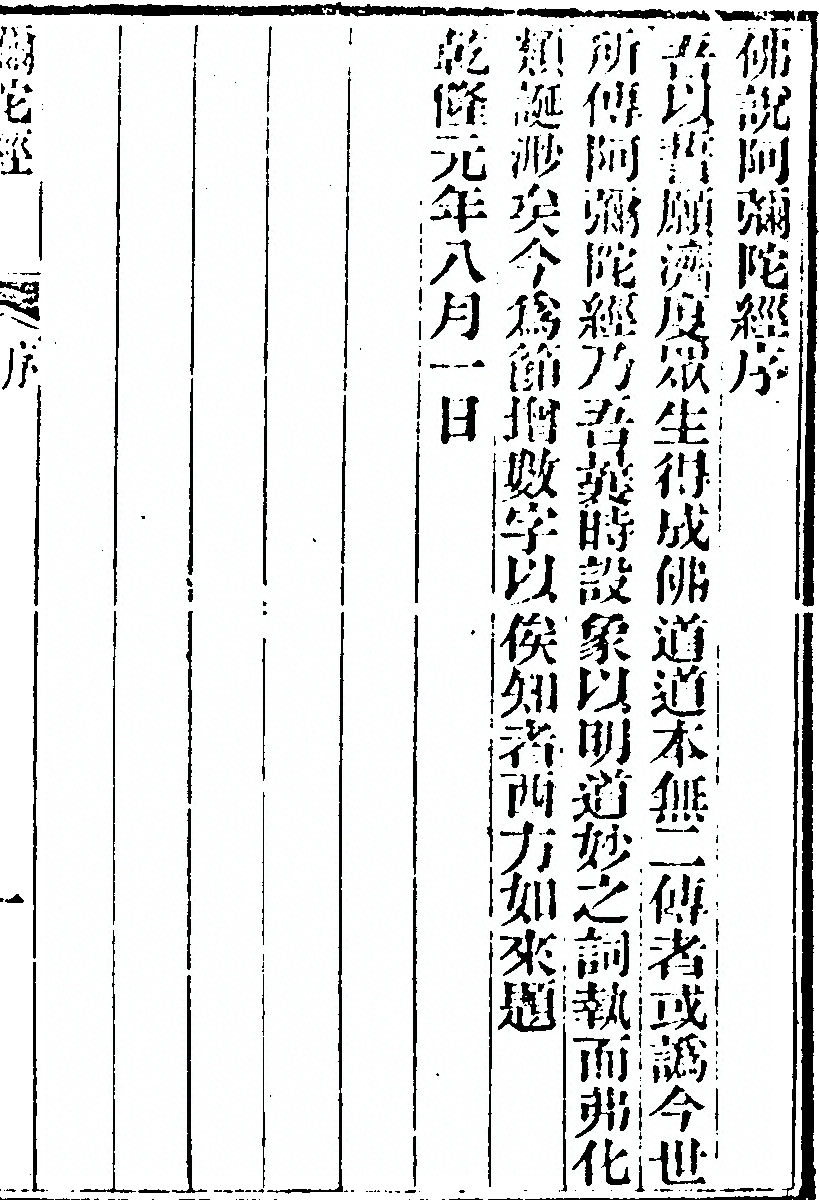 佛說阿彌陀經序
吾以誓願濟度眾生得成佛道道本無二傳者或譌今世
所傳阿彌陀經乃吾義時設象以明道妙之詞執而弗化
類誕渺矣今爲節增數字以俟知者西方如來題
乾隆元年八月一日
彌陀經
序
一